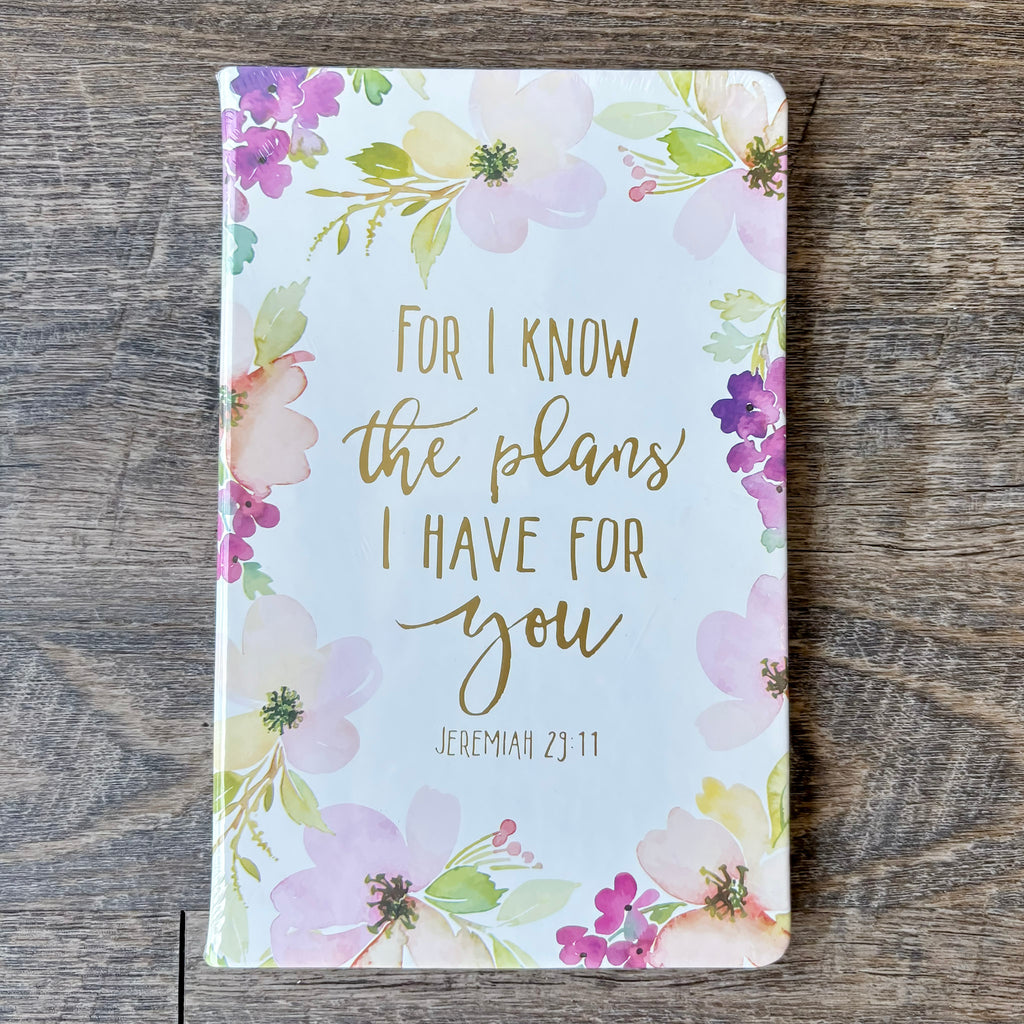 FOR I KNOW
the plans
I HAVE FOR
you
JEREMIAH 29:11